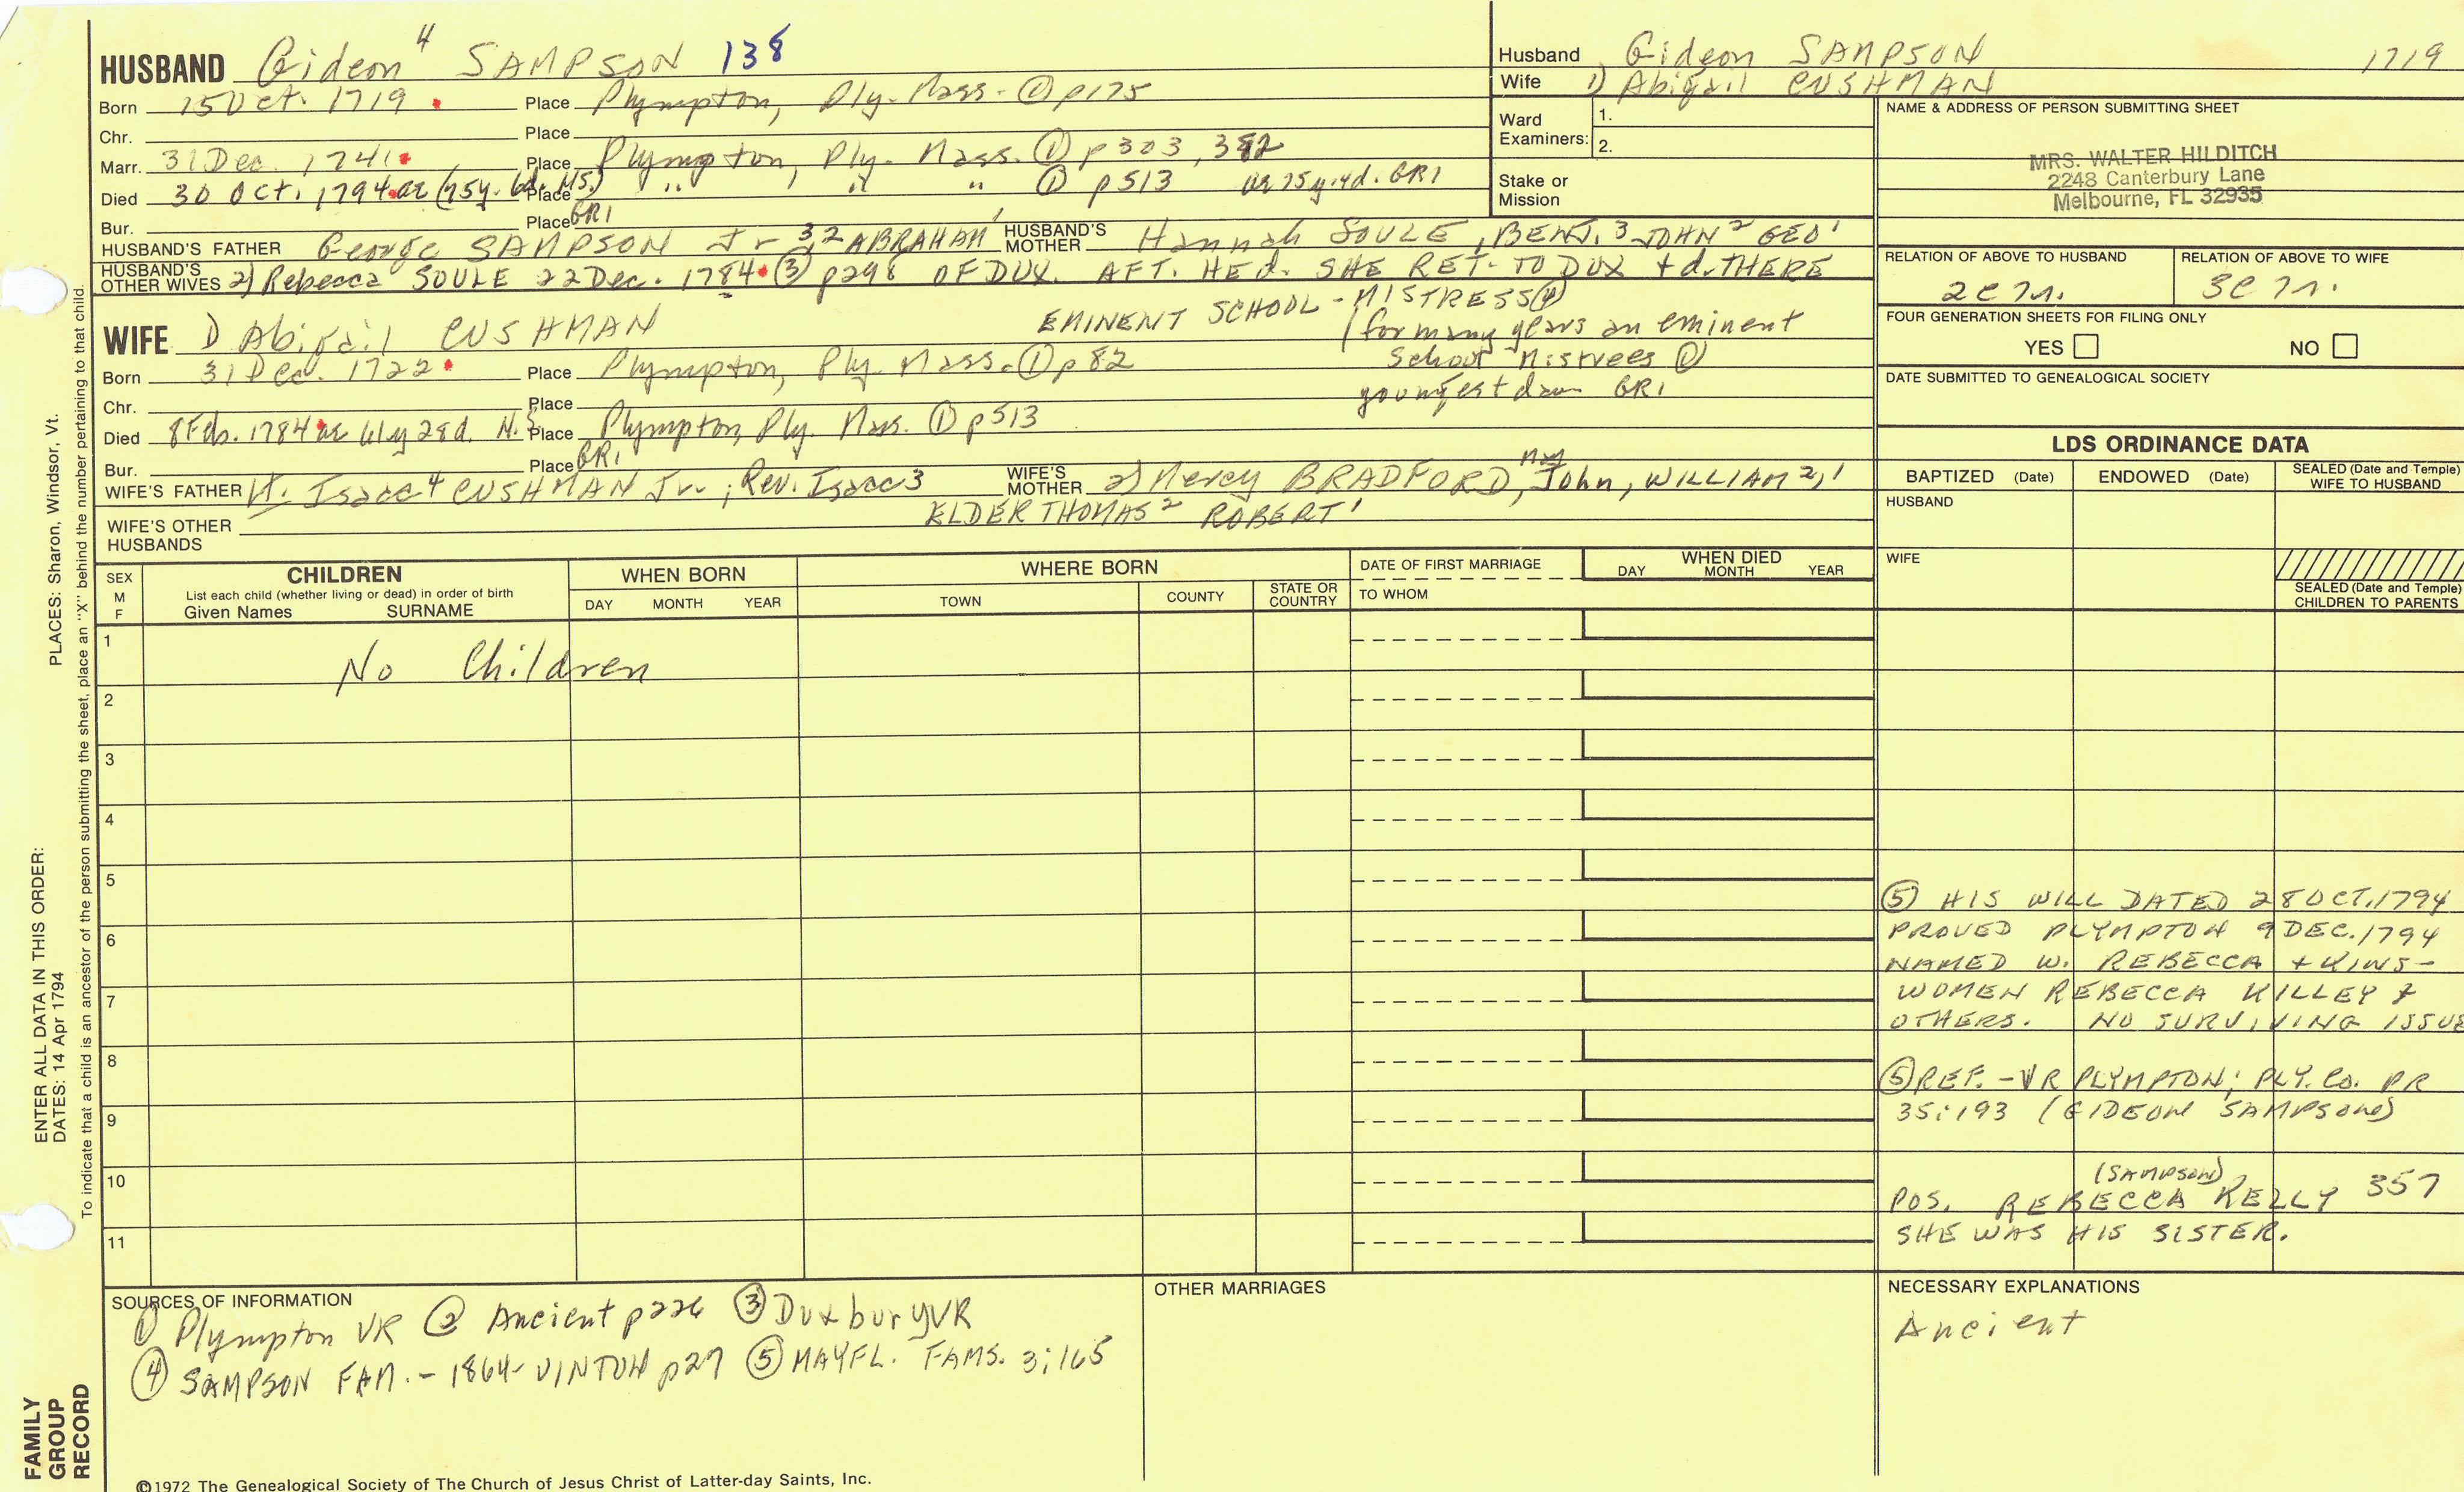 HUSBAND Gideon 4 SAMPSON 138
Born 15 Oct. 1719 Place Plympton, Ply. Mass. ① p175
Chr. Place
Marr. 31 Dec. 1741 Place Plympton, Ply. Mass. ① p303, 382
Died 30 Oct. 1794 ae (75y. 6d. NS.) Place " " " ① p513 ae 75y. 4d. GR1
Bur. Place GR1
HUSBAND'S FATHER George SAMPSON Jr 3, 2 ABRAHAM 1 HUSBAND'S MOTHER Hannah SOULE, BENJ. 3 JOHN 2 GEO 1
HUSBAND'S OTHER WIVES 2) Rebecca SOULE 22 Dec. 1784 ③ p298 OF DUX. AFT. HE d. SHE RET. TO DUX + d. THERE
EMINENT SCHOOL-MISTRESS ④
WIFE 1) Abigail CUSHMAN
(for many years an eminent
School Mistrees ②
youngest dau GR1
Born 31 Dec. 1722 Place Plympton, Ply. Mass. ① p82
Chr. Place
Died 8 Feb. 1784 ae 61y 28d. N.S. Place Plympton, Ply. Mass. ① p513
Bur. Place GR1
WIFE'S FATHER Lt. Isaac 4 CUSHMAN Jr.; Rev. Isaac 3 WIFE'S MOTHER 2) Mercy BRADFORD, Maj John, WILLIAM 2, 1
ELDER THOMAS 2 ROBERT 1
WIFE'S OTHER HUSBANDS
Husband Gideon SAMPSON 1719
Wife 1) Abigail CUSHMAN
Ward Examiners: 1.
2.
Stake or Mission
NAME & ADDRESS OF PERSON SUBMITTING SHEET
MRS. WALTER HILDITCH
2248 Canterbury Lane
Melbourne, FL 32935
RELATION OF ABOVE TO HUSBAND RELATION OF ABOVE TO WIFE
2C 7r. 3C 7r.
FOUR GENERATION SHEETS FOR FILING ONLY
YES NO
DATE SUBMITTED TO GENEALOGICAL SOCIETY
LDS ORDINANCE DATA
BAPTIZED (Date) ENDOWED (Date) SEALED (Date and Temple) WIFE TO HUSBAND
HUSBAND
WIFE
SEALED (Date and Temple) CHILDREN TO PARENTS
SEX M F
CHILDREN
List each child (whether living or dead) in order of birth
Given Names SURNAME
WHEN BORN
DAY MONTH YEAR
WHERE BORN
TOWN COUNTY STATE OR COUNTRY
DATE OF FIRST MARRIAGE
TO WHOM
WHEN DIED
DAY MONTH YEAR
1 No Children
2
3
4
5
6
7
8
9
10
11
⑤ HIS WILL DATED 28 OCT. 1794
PROVED PLYMPTON 9 DEC. 1794
NAMED W. REBECCA + KINS-
WOMEN REBECCA KILLEY &
OTHERS. NO SURVIVING ISSUE
⑤ REF. - VR PLYMPTON; PLY. Co. PR
35:193 (GIDEON SAMPSON)
(SAMPSON)
POS. REBECCA KELLY 357
SHE WAS HIS SISTER.
SOURCES OF INFORMATION
① Plympton VR ② Ancient p226 ③ Duxbury VR
④ SAMPSON FAM. - 1864 - VINTON p27 ⑤ MAYFL. FAMS. 3:165
OTHER MARRIAGES
NECESSARY EXPLANATIONS
Ancient
©1972 The Genealogical Society of The Church of Jesus Christ of Latter-day Saints, Inc.
ENTER ALL DATA IN THIS ORDER:
DATES: 14 Apr 1794
PLACES: Sharon, Windsor, Vt.
To indicate that a child is an ancestor of the person submitting the sheet, place an "X" behind the number pertaining to that child.
FAMILY GROUP RECORD